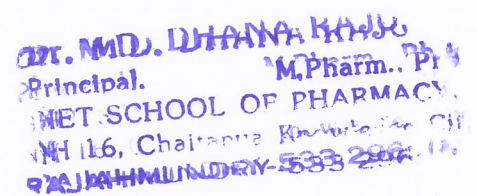 Dr. MD. DHANA RAJU
Principal. M.Pharm.,
NET SCHOOL OF PHARMACY,
NH 16, Chaitanya
RAJAHMUNDRY-533 296.